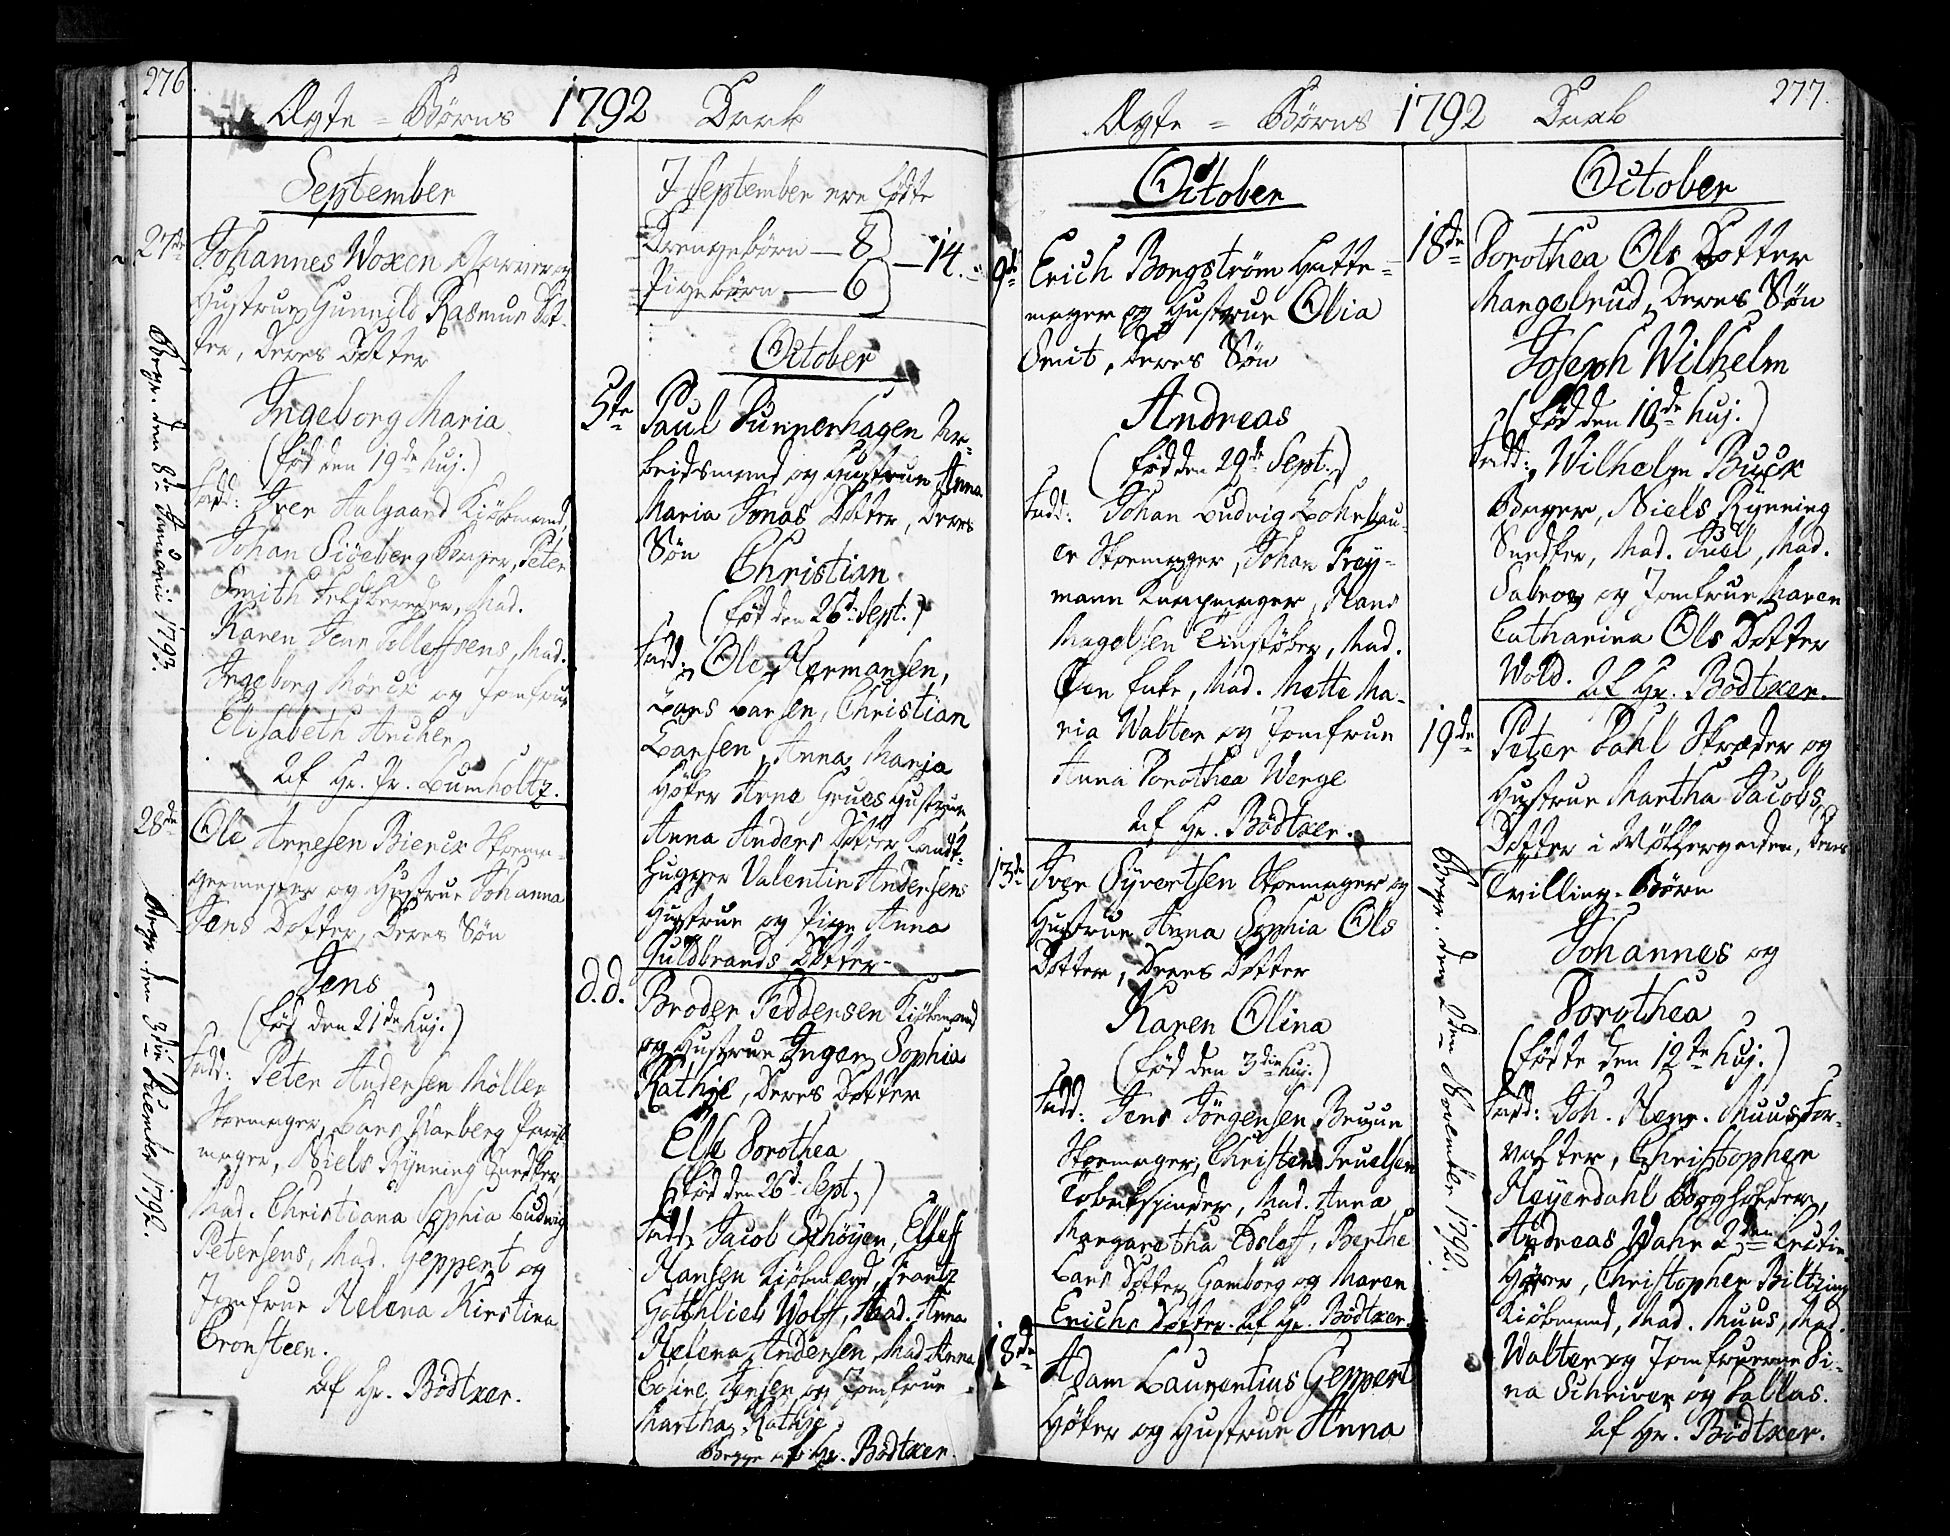 276
Ægte = Børns 1792 Daab
September
27de
Johannes Woxen
Hustrue Gunnild Rasmus Dot-
ter, deres Dotter
Ingeborg Maria
(fød den 19de huj.)
Fadd: Iver Aalgaard Kiöbmand,
Johan Siöeberg, Peter
Smith, Mad.
Karen Jens Tollefsens, Mad.
Ingeborg Mörck og Jomfrue
Elisabeth Ancher
Af Hr. Pr. Lumholtz.
Begr. den 8de Januarii 1793.
28de
Ole Arnesen Bierck Skoma-
germester og Hustrue Johanna
Jens Dotter, Deres Søn
Jens
(fød den 21de huj.)
Fadd: Peter Andersen Möller
Skoemager, Lars Karberg
mager, Niels Rÿnning Snedker,
Mad. Christiana Sophia Ludwig
Petersens, Mad. Geppert og
Jomfrue Helena Kirstina
Cronsteen.
Af Hr. Bödtker.
Begr. den 3die December 1792.
I September ere fødte
Drengebörn — 8
Pigebörn — 6
— 14.
October
5te
Paul Dunnerhagen Ar-
beidsmand og Hustrue Anna
Maria Jonas Dotter, Deres
Søn
Christian
(fød den 26de Sept.)
Fadd: Ole Hermansen,
Lars Larsen, Christian
Larsen, Anna Maria
Höker Arne Grues Hustrue,
Anna Anders Dotter
hugger Valentin Andersens
Hustrue og Pige Anna
Guldbrands Dotter
d.d.
Broder Feddersen Kiöbmand
og Hustrue Inger Sophia
Rathje, Deres Dotter
Else Dorothea
(fød den 26de Sept.)
Fadd: Jacob Schöyen, Ellef
Hansen Kiöbmænd, Frantz
Gotthlieb Wolff, Mad. Anna
Helena Andersen, Mad Anna
Cosine Jensen og Jomfrue
Martha Rathje.
Begge af Hr. Bödtker.
277.
Ægte = Børns 1792 Daab
October
9de
Erich Borgström Hatte-
mager og Hustrue Olia
Smit, deres Søn
Andreas
(fød den 29de Sept.)
Fadd: Johan Ludvig
er Skoemager, Johan Frey-
mann Knapmager, Hans
Magelssen Tinstöber, Mad.
Mad. Mette Ma-
ria Walter og Jomfrue
Anna Dorothea Werge
Af Hr. Bödtker.
13de
Iver Syvertsen Skoemager og
Hustrue Anna Sophia Ols
Dotter, Deres Dotter
Karen Olina
(fød den 3die huj.)
Fadd: Jens Jörgensen Bruun
Skoemager, Christen Truelsen
Tobakspinder, Mad. Anna
Margaretha Edsleff, Berthe
Lars Dotter Gamborg og Maren
Erichs Dotter. Af Hr. Bödtker.
18de
Adam Laurentius Geppert
Höker og Hustrue Anna
October
18de
Dorothea Ols Dotter
Mangelrud, Deres Søn
Joseph Wilhelm
(fød den 10de huj.)
Fadd: Wilhelm Buck
Borger, Niels Rÿnning
Snedker, Mad. Juel, Mad.
Sabroe og Jomfrue Maren
Catharina Ols Dotter
Wold. Af Hr. Bödtker.
19de
Peter Dahl Skræder og
Hustrue Martha Jacobs
Dotter i Vökkergaden, Deres
Tvilling-Börn
Johannes og
Dorothea
(fødte den 12te huj.)
Fadd: Joh. Henr. Muus For-
valter, Christopher
Heyerdahl Bogholder,
Andreas Wahr 2den Lectie
Hörer, Christopher Biltzing
Kiöbmand, Mad. Muus, Mad.
Walter og Jomfruerne Di-
na Schriver og Dallas.
Af Hr. Bödtker.
Begr. den 2den November 1792.